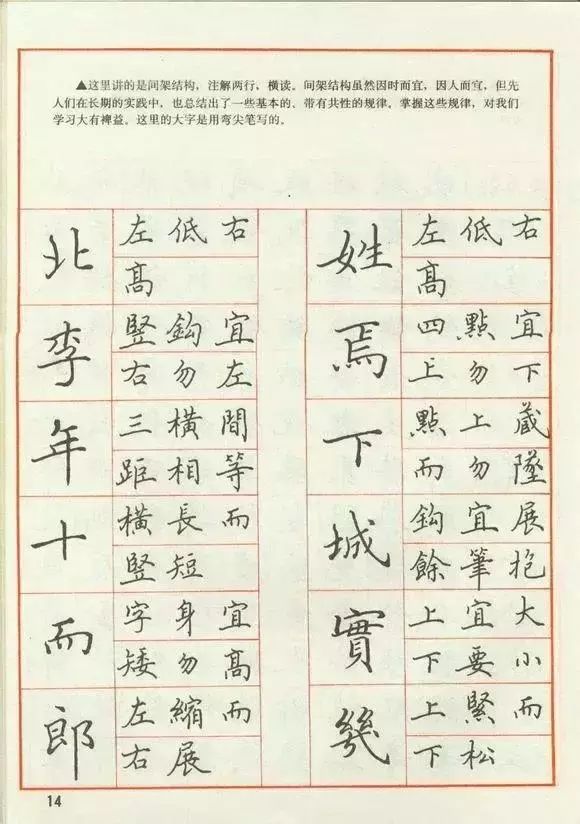 ▲这里讲的是间架结构，注解两行，横读。间架结构虽然因时而宜，因人而宜，但先
人们在长期的实践中，也总结出了一些基本的、带有共性的规律。掌握这些规律，对我们
学习大有裨益。这里的大字是用弯尖笔写的。
北
左低右
高
李
竖鈎宜
右勿左
年
三橫間
距相等
十
橫長而
竖短
而
字身宜
矮勿高
郎
左縮而
右展
姓
左低右
高
焉
四點宜
上勿下
下
點上藏
而勿墜
城
鈎宜展
餘筆抱
實
上宜大
下要小
幾
上緊而
下松
14